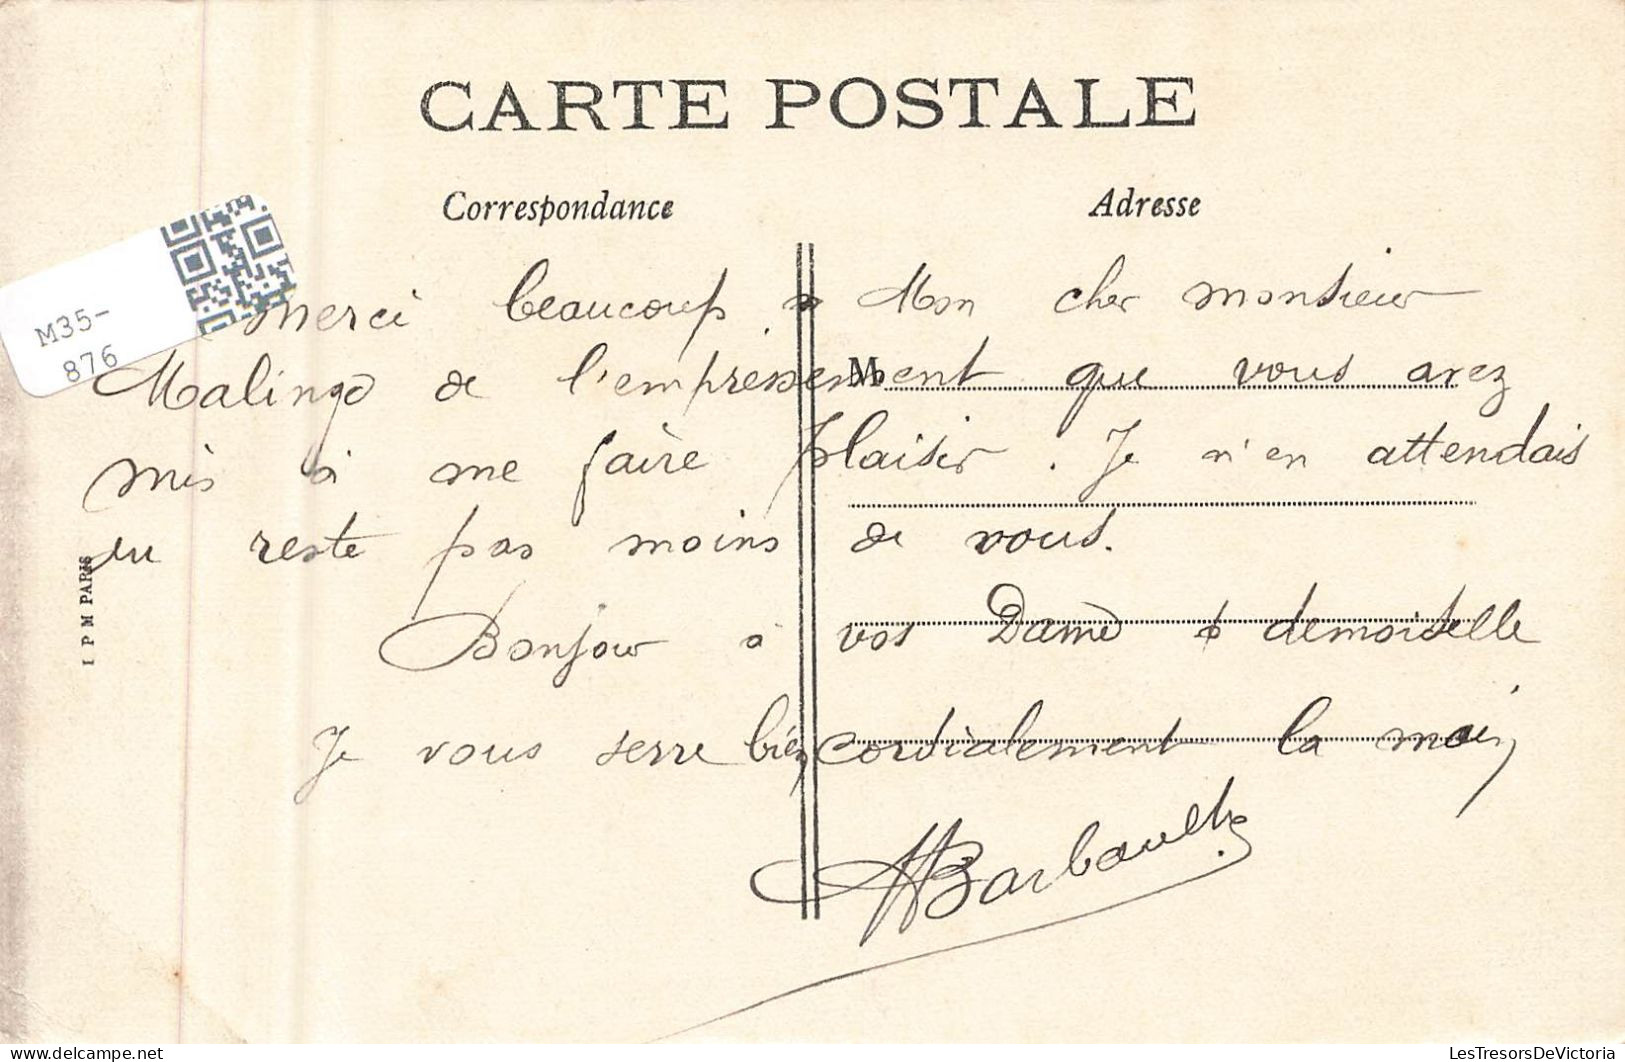 CARTE POSTALE
Correspondance
Adresse
M35-
876
Merci beaucoup Mon cher monsieur
Malingo de l'empressement que vous avez
M
mis à me faire plaisir. Je n'en attendais
du reste pas moins de vous.
I P M PARIS
Bonjour à vos Dame & demoiselle
Je vous serre bien cordialement la main
Barbault
LesTresorsDeVictoria